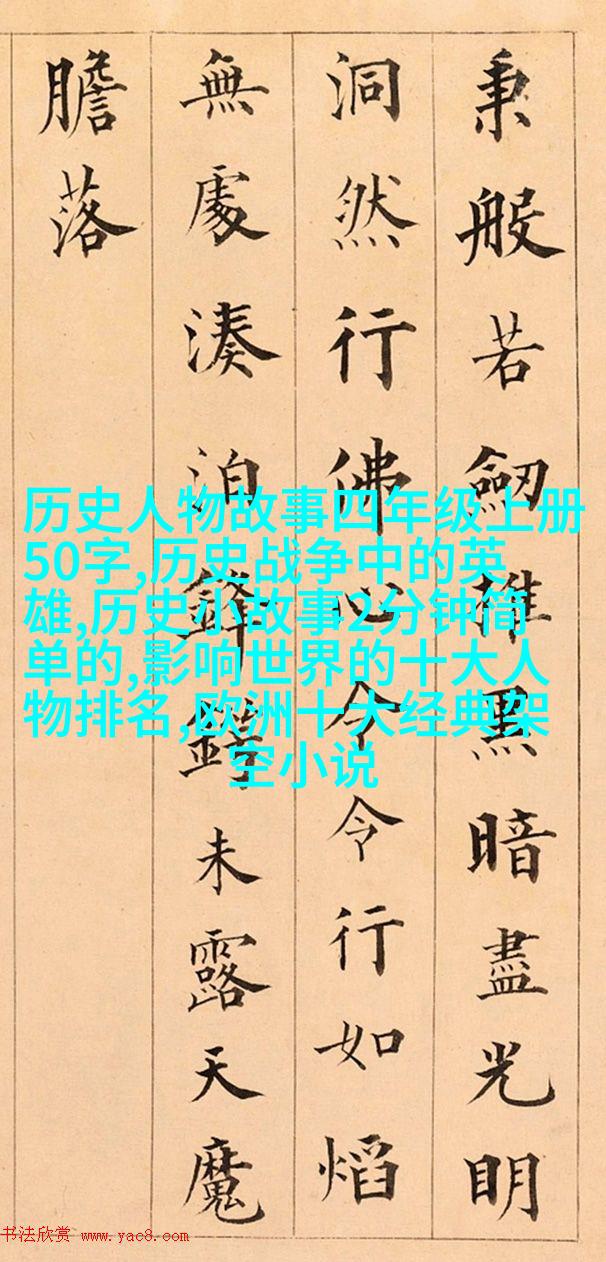 秉般若劒推黑暗盡光明
洞然行佛心令令行如熖
無處湊泊鋒鋩未露天魔
膽落
历史人物故事四年级上册
50字,历史战争中的英
雄,历史小故事2分钟简
单的,影响世界的十大人
物排名,欧洲十大经典架
空小说
书法欣赏 www.yac8.com